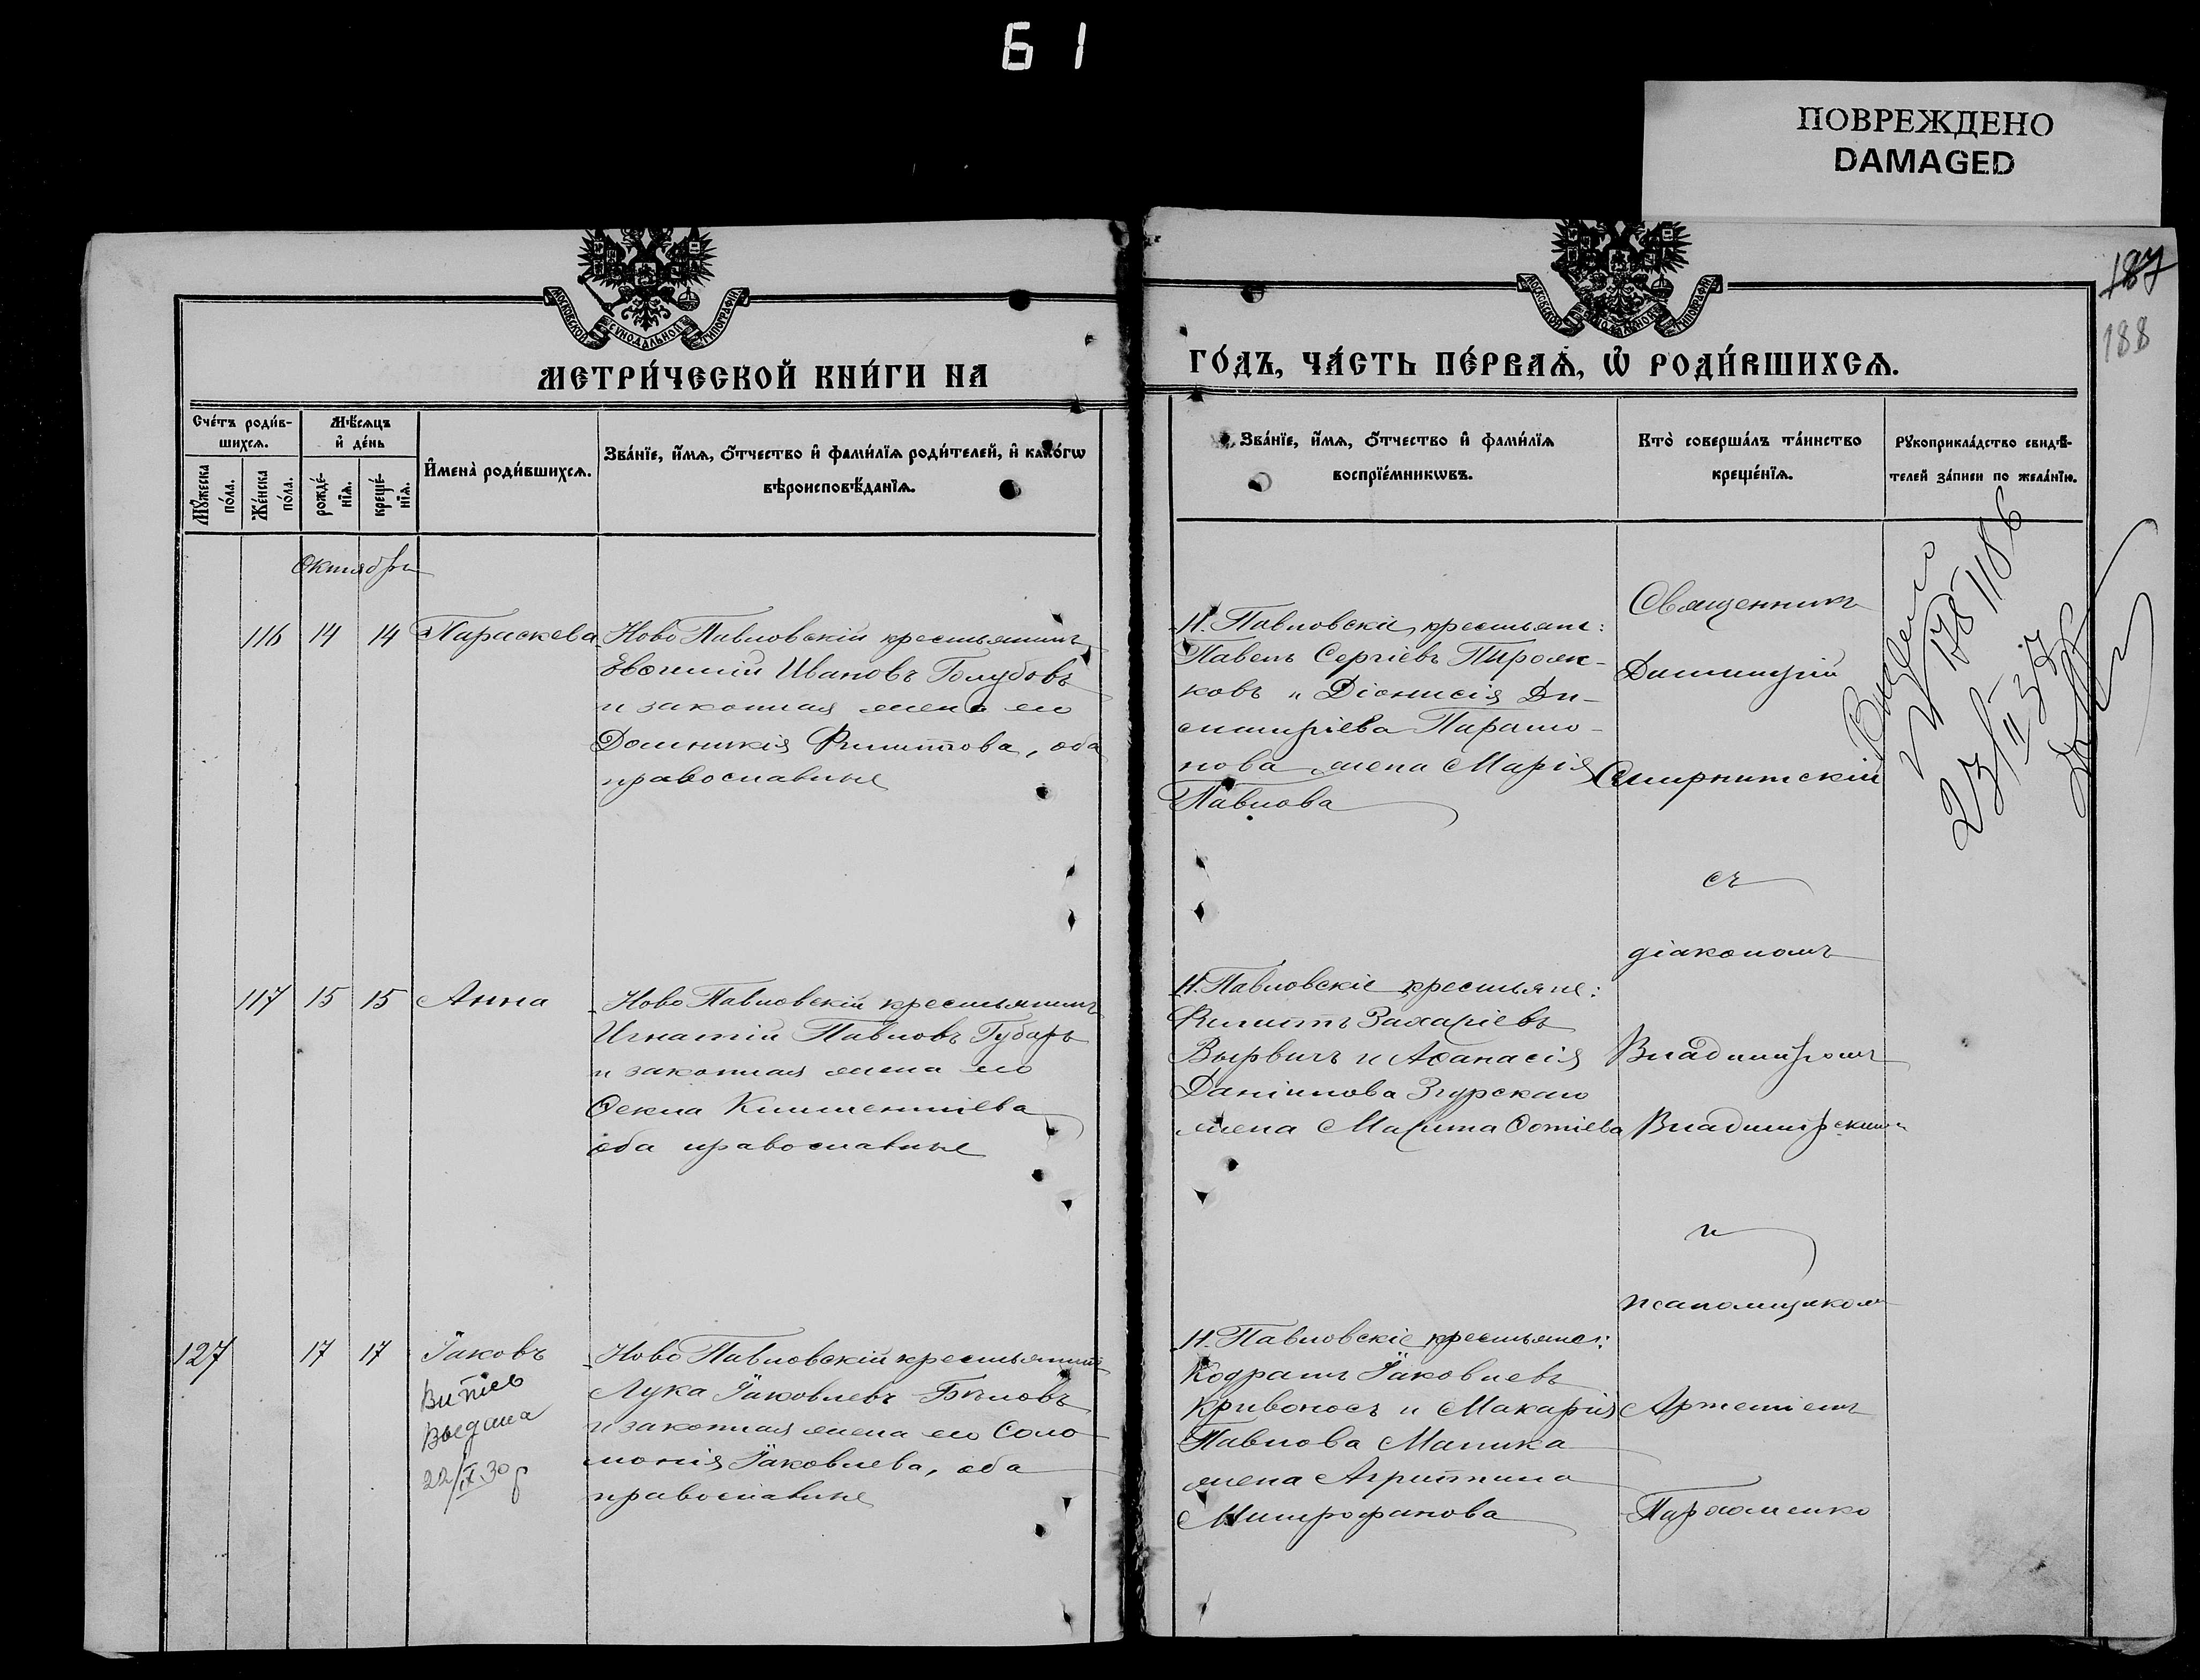 Б 1
ПОВРЕЖДЕНО
DAMAGED
МОСКОВСКОЙ СѴНОДАЛЬНОЙ ТИПОГРАФІИ
МОСКОВСКОЙ СѴНОДАЛЬНОЙ ТИПОГРАФІИ
187
188
МЕТРИ́ЧЕСКОЙ КНИ́ГИ НА
ГО́ДЪ, ЧА́СТЬ ПЕ́РВАѦ, Ѽ РОДИ́ВШИХСѦ.
Сче́тъ роди́в-
шихсѧ.
Мꙋ́жеска
по́ла.
Же́нска
по́ла.
Мѣ́сѧцъ
и҆ де́нь
рожде́-
нїѧ.
креще́-
нїѧ.
И҆мена̀ роди́вшихсѧ.
Зва́нїе, и҆́мѧ, ѻ҆́тчество и҆ фами́лїѧ роди́телей, и҆ како́гѡ
вѣроисповѣ́данїѧ.
Зва́нїе, и҆́мѧ, ѻ҆́тчество и҆ фами́лїѧ
воспрїе́мникѡвъ.
Кто̀ соверша́лъ та́инство
креще́нїѧ.
Рꙋкоприкла́дство свидѣ́-
телей за́писи по жела́нїю.
Октябрь
116 14 14 Параскева
Ново Павловскій крестьянинъ
Евѳимій Ивановъ Голубовъ
и законная жена его
Домникія Филиппова, оба
православные
Н. Павловскіе крестьяне:
Павелъ Сергіевъ Пирож-
ковъ и Діонисія Ди-
митріева Парамо-
нова жена Марія
Павлова
Священникъ
Димитрій
Смирнитскій
съ
діакономъ
Владиміромъ
Владимірскимъ
и
псаломщикомъ
Артеміемъ
Пархоменко
23/II 37
117 15 15 Анна
Ново Павловскій крестьянинъ
Игнатій Павловъ Губарь
и законная жена его
Ѳекла Климентіева
оба православные
Н. Павловскіе крестьяне:
Филиппъ Захаріевъ
Вырвичъ и Аѳанасія
Даніилова Згурскаго
жена Марина Ѳотіева
127 17 17 Іаковъ
Витяг
Видана
22/IX 30 р
Ново Павловскій крестьянинъ
Лука Іаковлевъ Бѣловъ
и законная жена его Соло
монія Іаковлева, оба
православные
Н. Павловскіе крестьяне:
Кодратъ Іаковлевъ
Кривоносъ и Макарія
Павлова Малика
жена Агриппина
Митрофанова